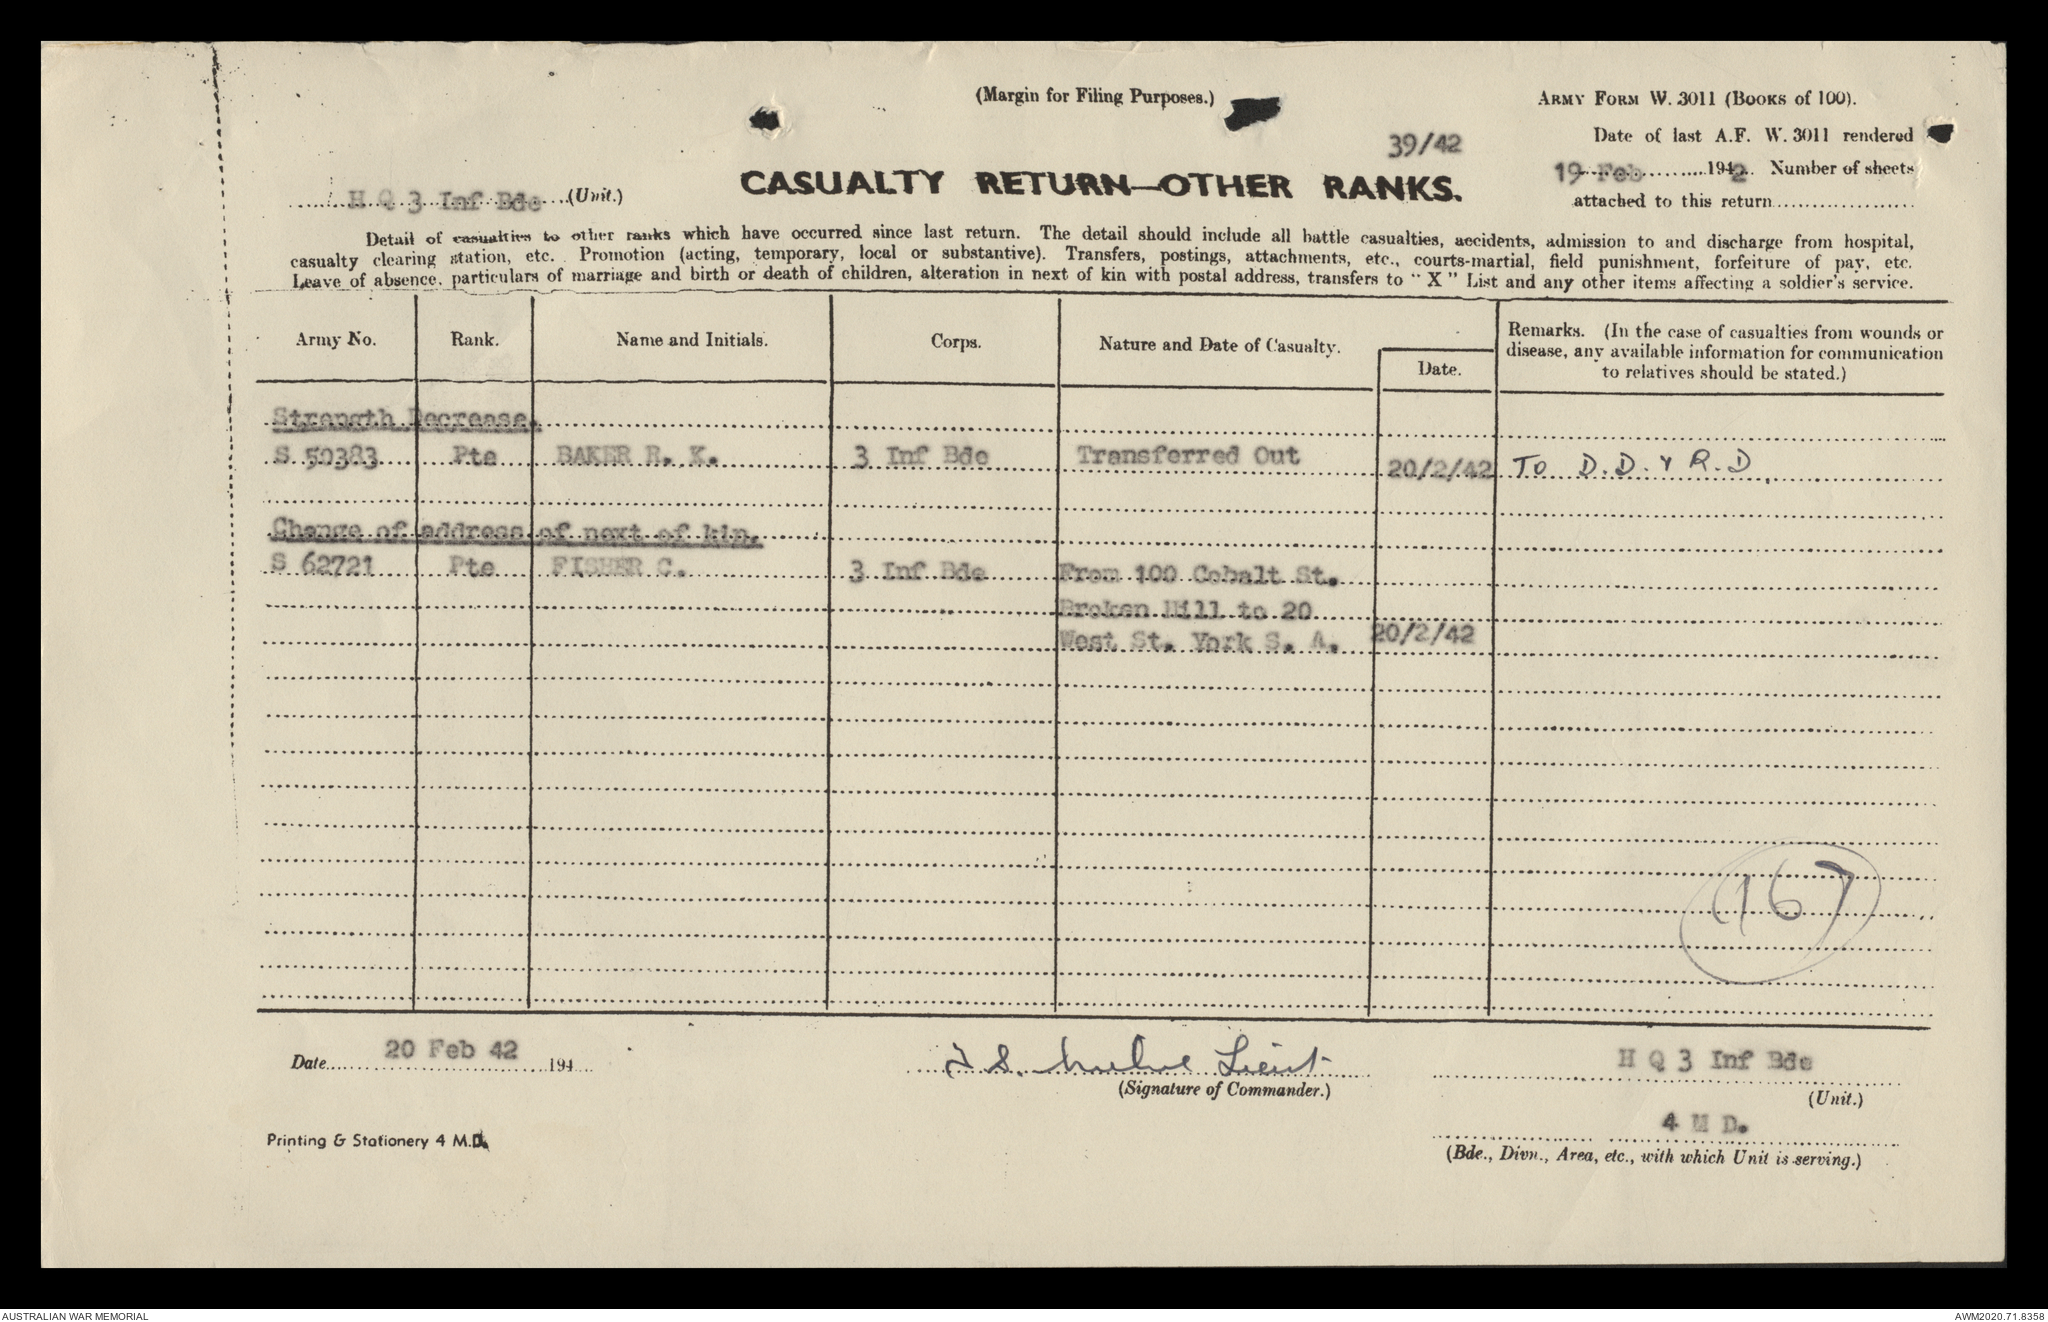 (Margin for Filing Purposes.)
ARMY FORM W. 3011 (BOOKS of 100).
39/42
Date of last A.F. W. 3011 rendered
19 Feb 1942 Number of sheets
attached to this return
H Q 3 Inf Bde (Unit.)
CASUALTY RETURN—OTHER RANKS.
Detail of casualties to other ranks which have occurred since last return. The detail should include all battle casualties, accidents, admission to and discharge from hospital,
casualty clearing station, etc. Promotion (acting, temporary, local or substantive). Transfers, postings, attachments, etc., courts-martial, field punishment, forfeiture of pay, etc.
Leave of absence, particulars of marriage and birth or death of children, alteration in next of kin with postal address, transfers to "X" List and any other items affecting a soldier's service.
Army No. Rank. Name and Initials. Corps. Nature and Date of Casualty. Date.
Remarks. (In the case of casualties from wounds or
disease, any available information for communication
to relatives should be stated.)
Strength Decrease.
S 50383 Pte BAKER R. K. 3 Inf Bde Transferred Out 20/2/42 To D.D. & R.D.
Change of address of next of kin.
S 62721 Pte FISHER C. 3 Inf Bde From 100 Cobalt St.
Broken Hill to 20
West St. York S. A. 20/2/42
167
Date 20 Feb 42 194
Lieut
(Signature of Commander.)
H Q 3 Inf Bde
(Unit.)
4 M D.
(Bde., Divn., Area, etc., with which Unit is serving.)
Printing & Stationery 4 M.D.
AUSTRALIAN WAR MEMORIAL
AWM2020.71.8358